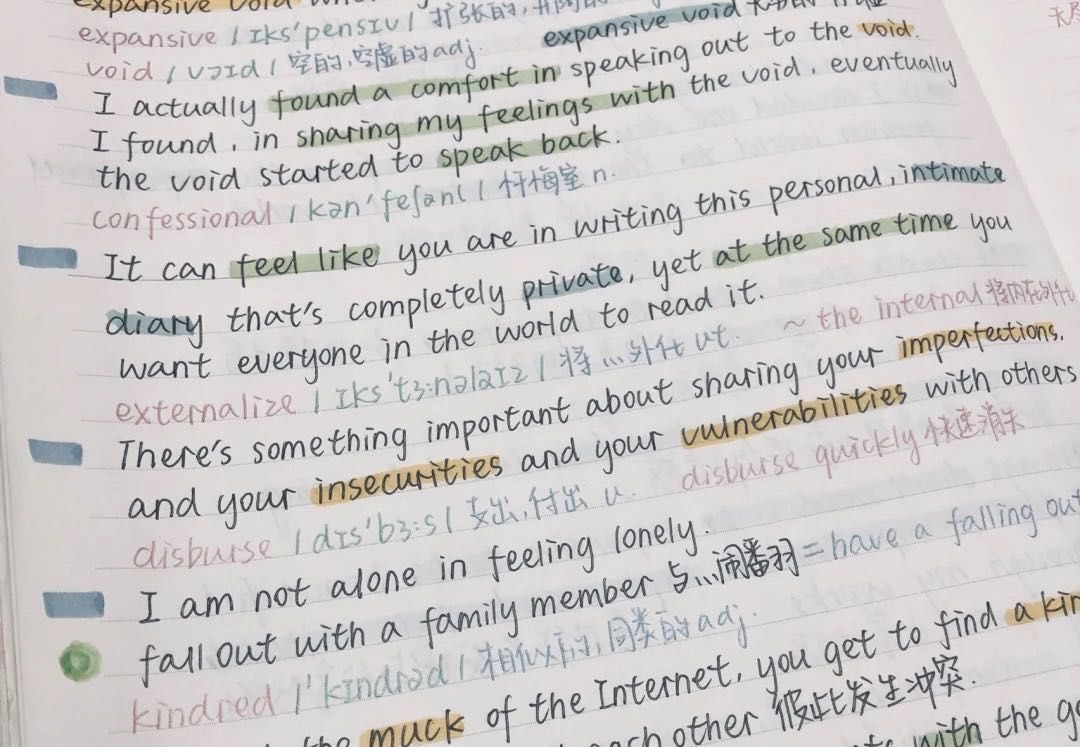 expansive void
expansive / ɪks'pensɪv / 扩张的,开阔的
void / vɔɪd / 空的,空虚的 adj. expansive void
I actually found a comfort in speaking out to the void.
I found, in sharing my feelings with the void, eventually
the void started to speak back.
confessional / kən'feʃənl / 忏悔室 n.
It can feel like you are in writing this personal, intimate
diary that's completely private, yet at the same time you
want everyone in the world to read it.
externalize / ɪks'tɜ:nəlaɪz / 将…外化 vt. ~ the internal 将内在外化
There's something important about sharing your imperfections,
and your insecurities and your vulnerabilities with others
disburse / dɪs'bɜ:s / 支出,付出 v. disburse quickly 快速消失
I am not alone in feeling lonely.
fall out with a family member 与…闹翻 = have a falling out
kindred / 'kɪndrəd / 相似的,同类的 adj.
muck of the Internet, you get to find a
each other 彼此发生冲突.
with the